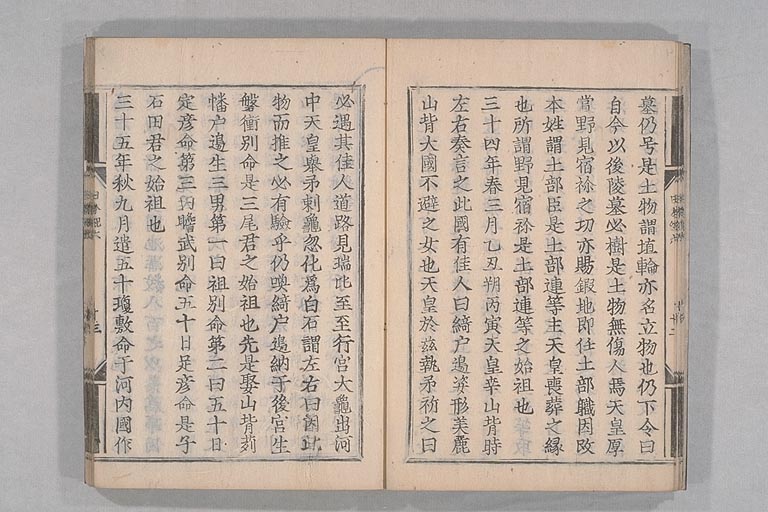 墓仍号是土物謂埴輪亦名立物也仍下令曰
自今以後陵墓必樹是土物無傷人焉天皇厚
賞野見宿祢之功亦賜鍛地即任土部職因改
本姓謂土部臣是土部連等主天皇喪葬之縁
也所謂野見宿祢是土部連等之始祖也
三十四年春三月乙丑朔丙寅天皇幸山背時
左右奏言之此國有佳人曰綺戸邊姿形美麗
山背大國不遲之女也天皇於茲執矛祈之曰
必遇其佳人道路見瑞比至于行宮大龜出河
中天皇舉矛刺龜忽化爲白石謂左右曰因此
物而推之必有驗乎仍喚綺戸邊納于後宮生
磐衝別命是三尾君之始祖也先是娶山背苅
幡戸邊生三男第一曰祖別命第二曰五十日
足彦命第三曰膽武別命五十日足彦命是子
石田君之始祖也
三十五年秋九月遣五十瓊敷命于河内國作